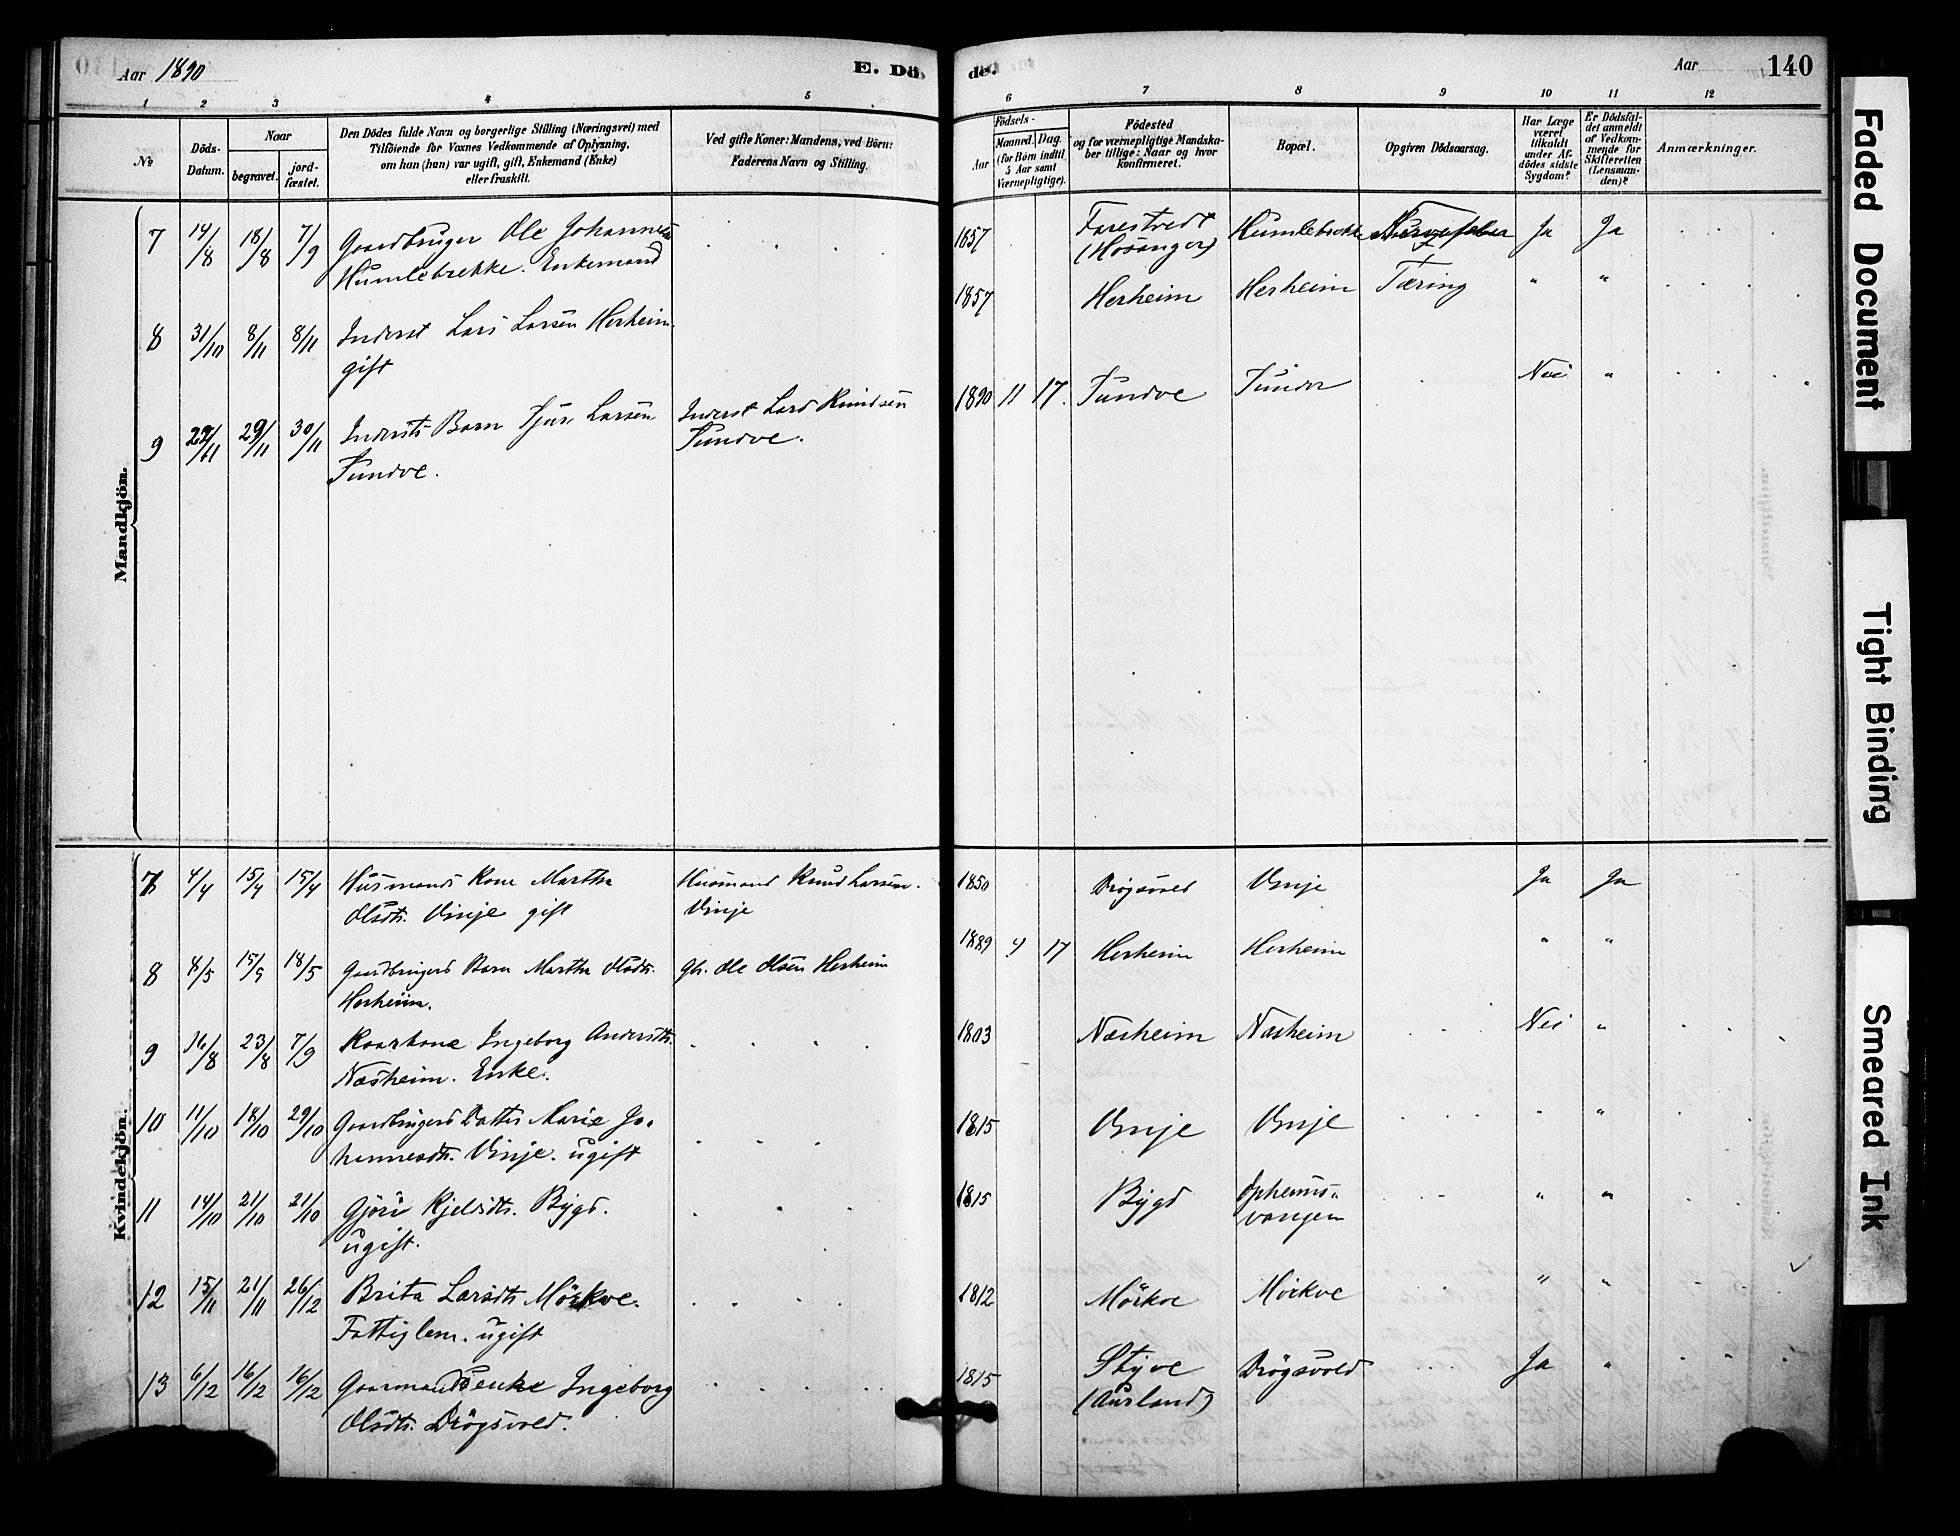 Aar 1890
E. Dö
1 2 3 4 5
No
Döds-Datum.
Naar
begravet.
jord-fæstet.
Den Dödes fulde Navn og borgerlige Stilling (Næringsvei) med
Tilföiende for Voxnes Vedkommende af Oplysning,
om han (hun) var ugift, gift, Enkemand (Enke)
eller fraskilt.
Ved gifte Koner: Mandens, ved Börn:
Faderens Navn og Stilling.
Mandkjön.
7 14/8 18/8 7/9 Gaardbruger Ole Johannes
Humlebrekke. Enkemand
8 31/10 8/11 8/11 Inderst Lars Larsen Herheim.
gift
9 29/11 30/11 Indersts Barn Sjur Larsen
Tundve.
Inderst Lars Knudsen
Tundve.
Kvindekjön.
7 4/4 15/4 15/4 Husmands Kone Martha
Olsdtr. Vinje gift
Husmand Knud Larsen.
Vinje
8 8/5 15/5 18/5 Gaardbrugers Barn Martha Olsdtr.
Herheim.
Gbr. Ole Olsen Herheim
9 16/8 23/8 7/9 Kaarkone Ingeborg Andersdtr.
Næsheim. Enke.
10 11/10 18/10 29/10 Gaardbrugers Datter Marie Jo-
hannesdtr. Vinje. ugift
11 14/10 21/10 21/10 Gjöri Kjelsdtr. Bygd.
ugift.
12 15/11 21/11 26/12 Brita Larsdtr Mörkve.
Fattiglem. ugift
13 6/12 16/12 16/12 Gaarmandsenke Ingeborg
Olsdtr. Drögsvold.
de.
Aar
140
6 7 8 9 10 11 12
Födsels-
Aar
Maaned. Dag.
(for Börn indtil
5 Aar samt
Værnepligtige).
Födested
og for værnepligtige Mandska-
ber tillige: Naar og hvor
konfirmeret.
Bopæl.
Opgiven Dödsaarsag.
Har Læge
været
tilkaldt
under Af-
dödes sidste
Sygdom?
Er Dödsfal-
det anmeldt
af Vedkom-
mende for
Skifteretten
(Lensman-
den)?
Anmærkninger.
1857 Farestvedt
(Hosanger)
Humlebrekke Nervefeber Ja Ja
1857 Herheim Herheim Tæring " "
1890 11 17. Tundve Tundve Nei "
1850 Drögsvold Vinje Ja Ja
1889 4 17 Herheim Herheim " "
1803 Næsheim Næsheim Nei "
1815 Vinje Vinje " "
1815 Bygd Opheims-
vangen " "
1812 Mörkve Mörkve " "
1815 Styve
(Aurland)
Drögsvold Ja "
Faded Document
Tight Binding
Smeared Ink